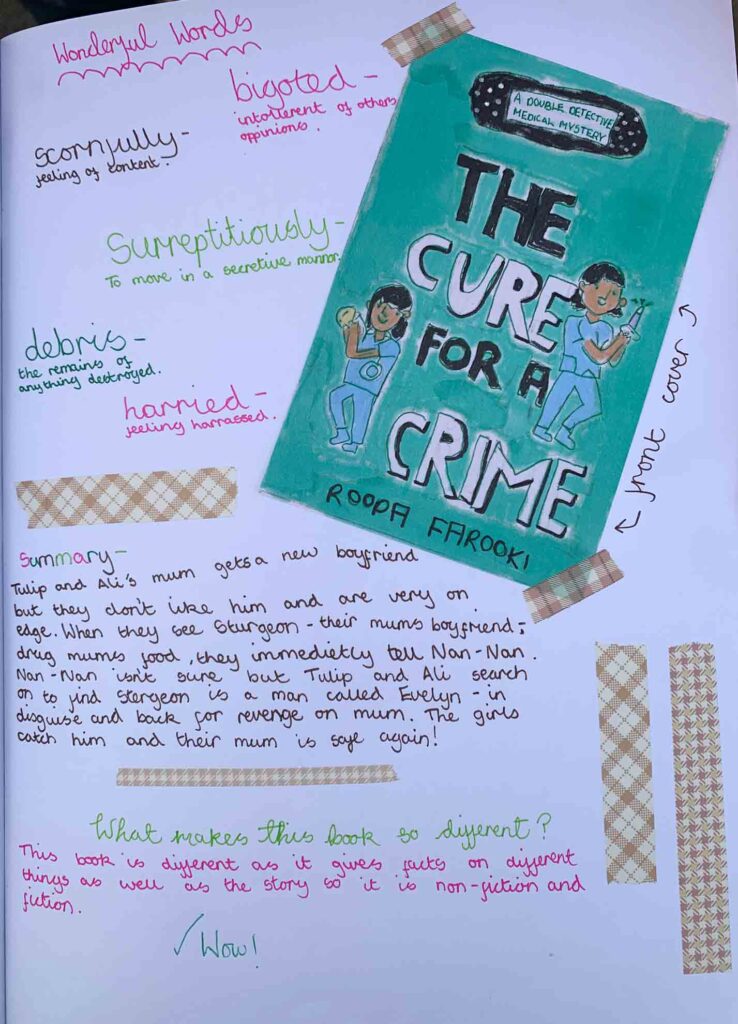 Wonderful Words
bigoted -
intollerent of others
oppinions.
scornfully -
feeling of content.
Surreptitiously -
To move in a secretive mannor.
debris -
the remains of
anything destroyed.
harried -
feeling harrassed.
A DOUBLE DETECTIVE
MEDICAL MYSTERY
THE
CURE
FOR A
CRIME
ROOPA FAROOKI
← front cover →
Summary -
Tulip and Ali's mum gets a new boyfriend
but they don't like him and are very on
edge. When they see Sturgeon - their mums boyfriend,-
drug mums food, they immedietly tell Nan-Nan.
Nan-Nan isn't sure but Tulip and Ali search
on to find Stergeon is a man called Evelyn - in
disguise and back for revenge on mum. The girls
catch him and their mum is safe again!
What makes this book so different?
This book is different as it gives facts on different
things as well as the story so it is non-fiction and
fiction.
✓ Wow!